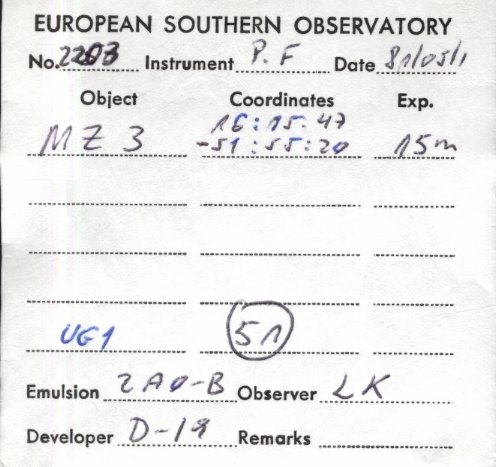 EUROPEAN SOUTHERN OBSERVATORY
No. 2203 Instrument P.F Date 81/05/1
Object Coordinates Exp.
16:15:47
MZ 3 -51:55:20 15m
UG1 51
Emulsion 2A0-B Observer LK
Developer D-19 Remarks